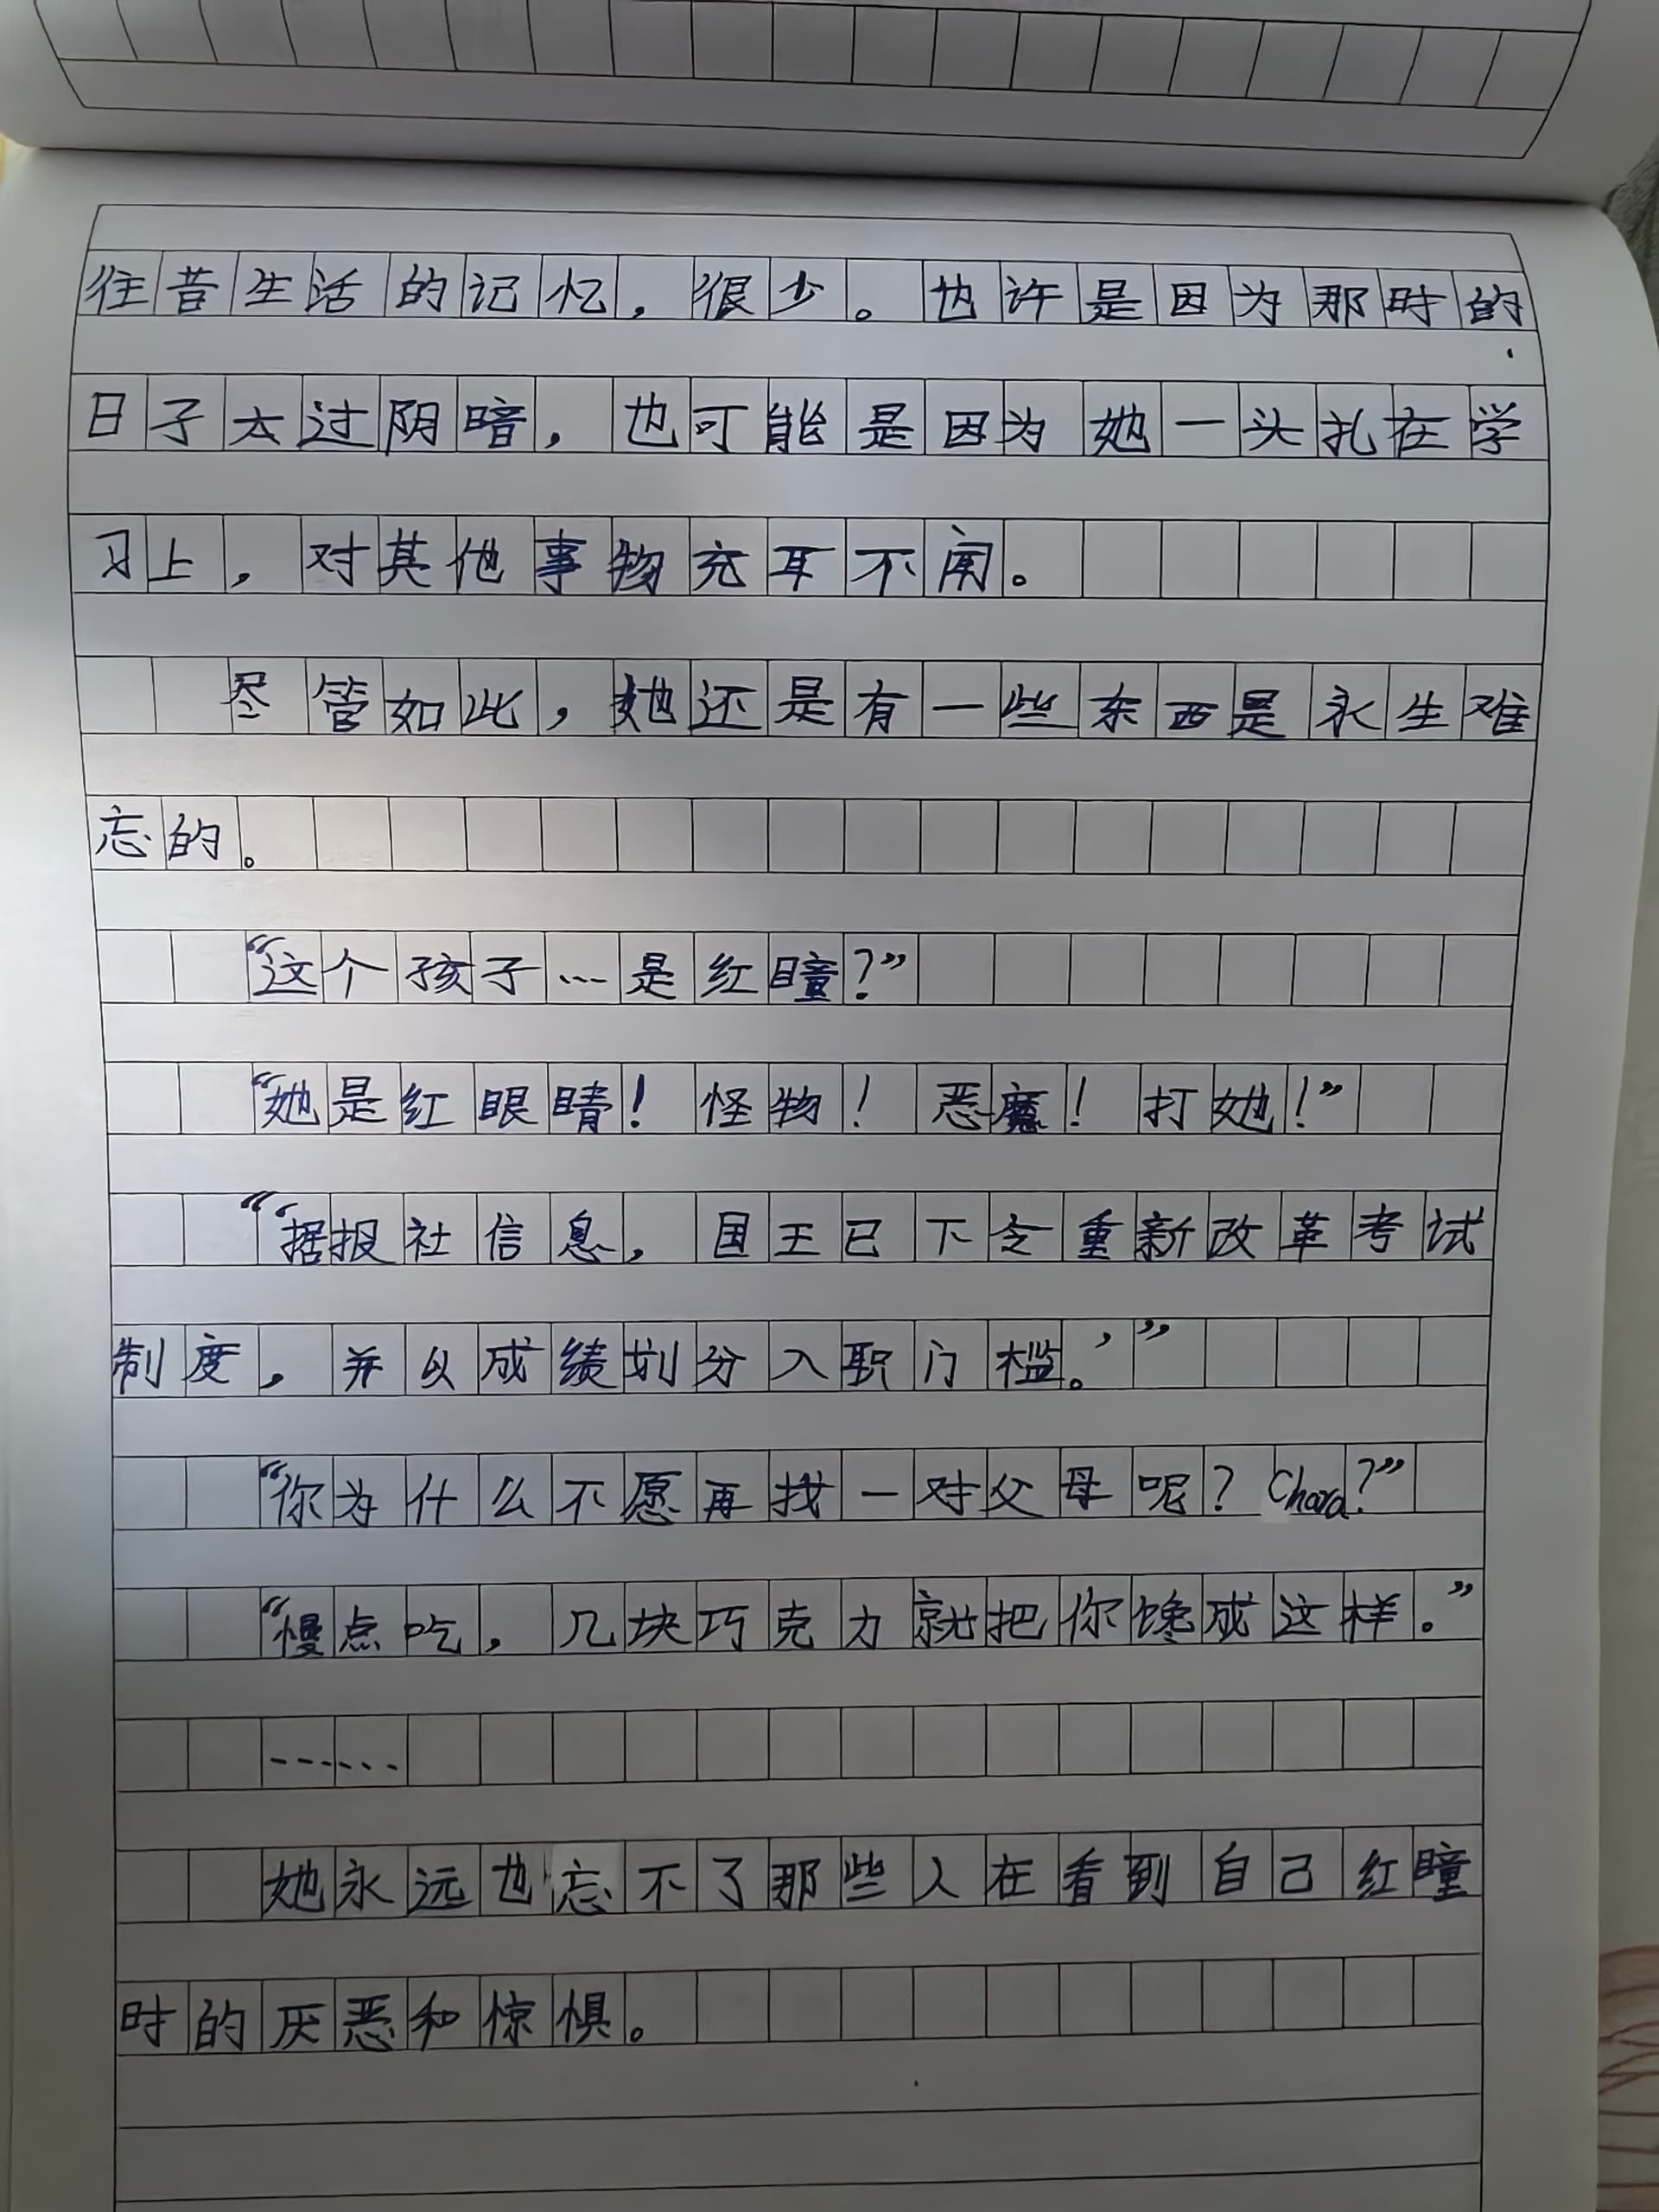 往昔生活的记忆，很少。也许是因为那时的
日子太过阴暗，也可能是因为她一头扎在学
习上，对其他事物充耳不闻。
尽管如此，她还是有一些东西是永生难
忘的。
“这个孩子…是红瞳？”
“她是红眼睛！怪物！恶魔！打她！”
“‘据报社信息，国王已下令重新改革考试
制度，并以成绩划分入职门槛。’”
“你为什么不愿再找一对父母呢？Chara？”
“慢点吃，几块巧克力就把你馋成这样。”
……
她永远也忘不了那些人在看到自己红瞳
时的厌恶和惊惧。